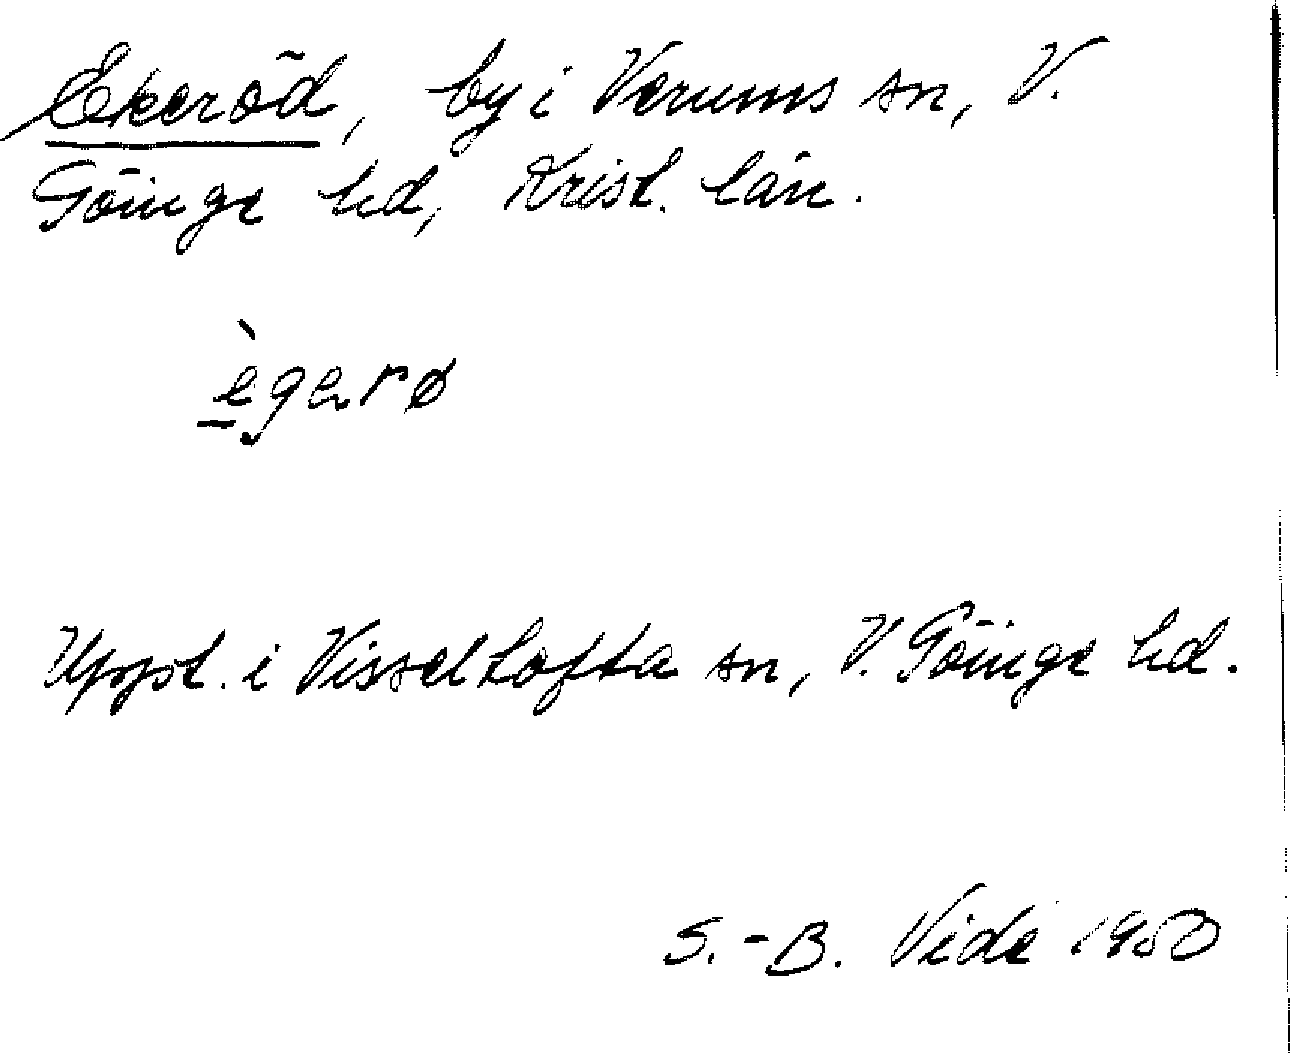 Ekeröd, by i Verums sn, V.
Göinge hd, Krist. län.
è̱gerø
Uppt. i Visseltofta sn, V. Göinge hd.
S.-B. Vide 1950